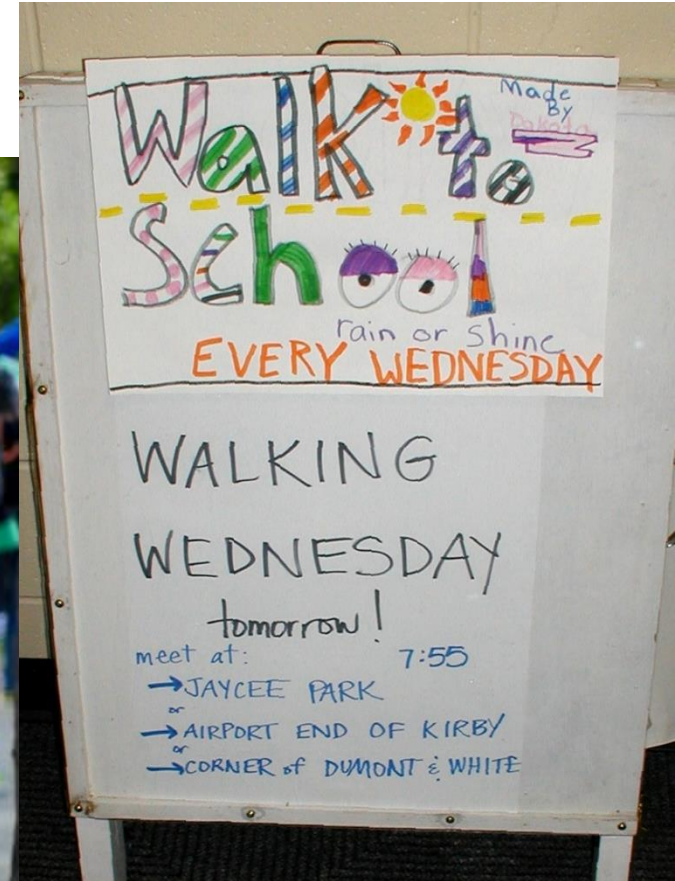 Walk to
Made
By
Dakota
School
rain or shine
EVERY WEDNESDAY
WALKING
WEDNESDAY
tomorrow!
meet at: 7:55
→JAYCEE PARK
or
→AIRPORT END OF KIRBY
or
→CORNER of DUMONT & WHITE